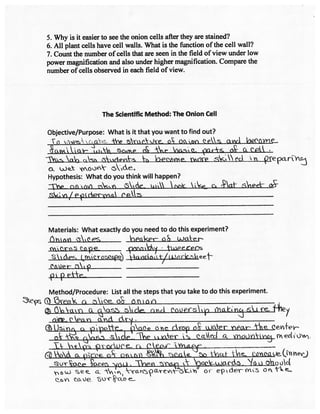 5. Why is it easier to see the onion cells after they are stained?
6. All plant cells have cell walls. What is the function of the cell wall?
7. Count the number of cells that are seen in the field of view under low
power magnification and also under higher magnification. Compare the
number of cells observed in each field of view.
The Scientific Method: The Onion Cell
Objective/Purpose: What is it that you want to find out?
To investigate the structure of onion cells and become
familiar with some of the basic parts of a cell.
This lab also students to become more skilled in preparing
a wet mount slide.
Hypothesis: What do you think will happen?
The onion skin slide will look like a flat sheet of
skin/epidermal cells
Materials: What exactly do you need to do this experiment?
Onion slices beaker of water
microscope possibly tweezers
Slides (microscope) Handout/Worksheet
cover slip
pipette
Method/Procedure: List all the steps that you take to do this experiment.
Steps ① Break a slice of onion
② Obtain a glass slide and coverslip making sure they
are clean and dry.
③ Using a pipette, place one drop of water near the center
of the glass slide. The water is called a mounting medium.
It helps produce a clear image.
④ Hold a piece of onion scale so that the concave (inner)
surface faces you. Then snap it backwards. You should
now see a thin, transparent skin or epidermis on the
concave surface.